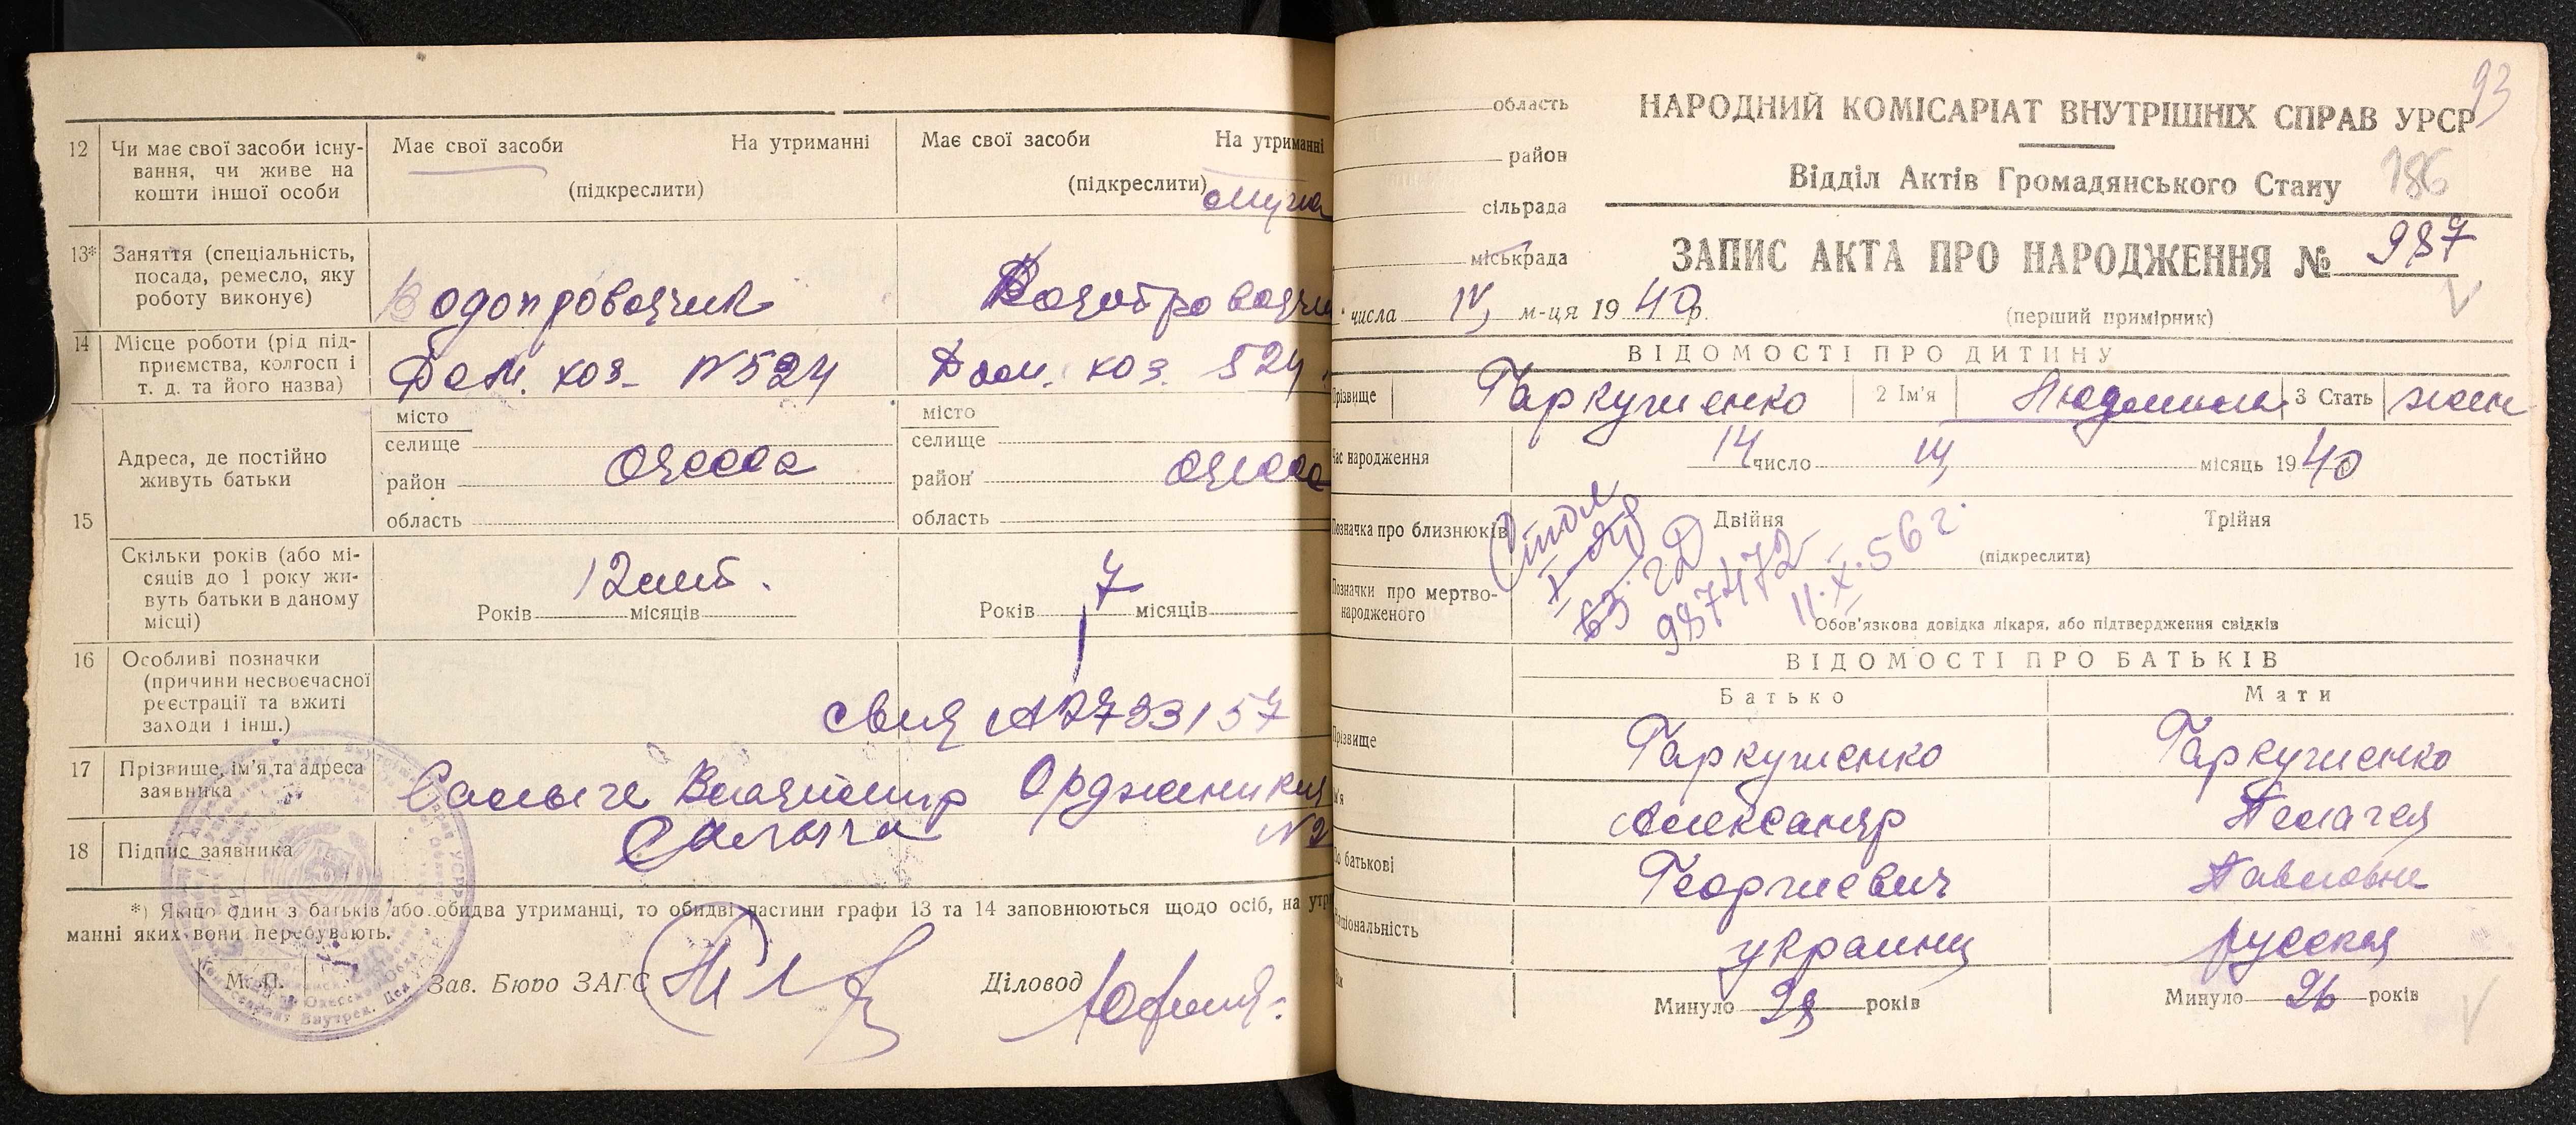 12 Чи має свої засоби існу-
вання, чи живе на
кошти іншої особи
Має свої засоби На утриманні
(підкреслити)
Має свої засоби На утриманні
(підкреслити)
мужа
13* Заняття (спеціальність,
посада, ремесло, яку
роботу виконує)
Водопроводчик
14 Місце роботи (рід під-
приємства, колгосп і
т. д. та його назва)
Дом. хоз. №524
Дом. хоз. 524
15
Адреса, де постійно
живуть батьки
місто
селище
район
область
Одесса
місто
селище
район
область
Одесса
Скільки років (або мі-
сяців до 1 року жи-
вуть батьки в даному
місці)
12 лет.
Років місяців
7
Років місяців
16 Особливі позначки
(причини несвоєчасної
реєстрації та вжиті
заходи і інш.)
17 Прізвище, ім'я та адреса
заявника
Владимир
18 Підпис заявника
*) Якщо один з батьків або обидва утриманці, то обидві частини графи 13 та 14 заповнюються щодо осіб, на утри
манні яких вони перебувають.
М. П. Зав. Бюро ЗАГС Діловод
93
область
район
сільрада
міськрада
НАРОДНИЙ КОМІСАРІАТ ВНУТРІШНІХ СПРАВ УРСР
Відділ Актів Громадянського Стану 186
ЗАПИС АКТА ПРО НАРОДЖЕННЯ № 987
числа IV м-ця 1940 р.
(перший примірник)
ВІДОМОСТІ ПРО ДИТИНУ
Прізвище Гаркушенко 2 Ім'я Людмила 3 Стать жен
Час народження 14 число III місяць 1940
Позначка про близнюків Двійня Трійня
(підкреслити)
987472
11.X.56 г.
Позначки про мертво-
народженого
Обов'язкова довідка лікаря, або підтвердження свідків
ВІДОМОСТІ ПРО БАТЬКІВ
Батько Мати
Прізвище Гаркушенко Гаркушенко
Ім'я Александр Пелагея
По батькові Георгиевич Павловна
Національність украинец русская
Вік
Минуло років
Минуло 26 років